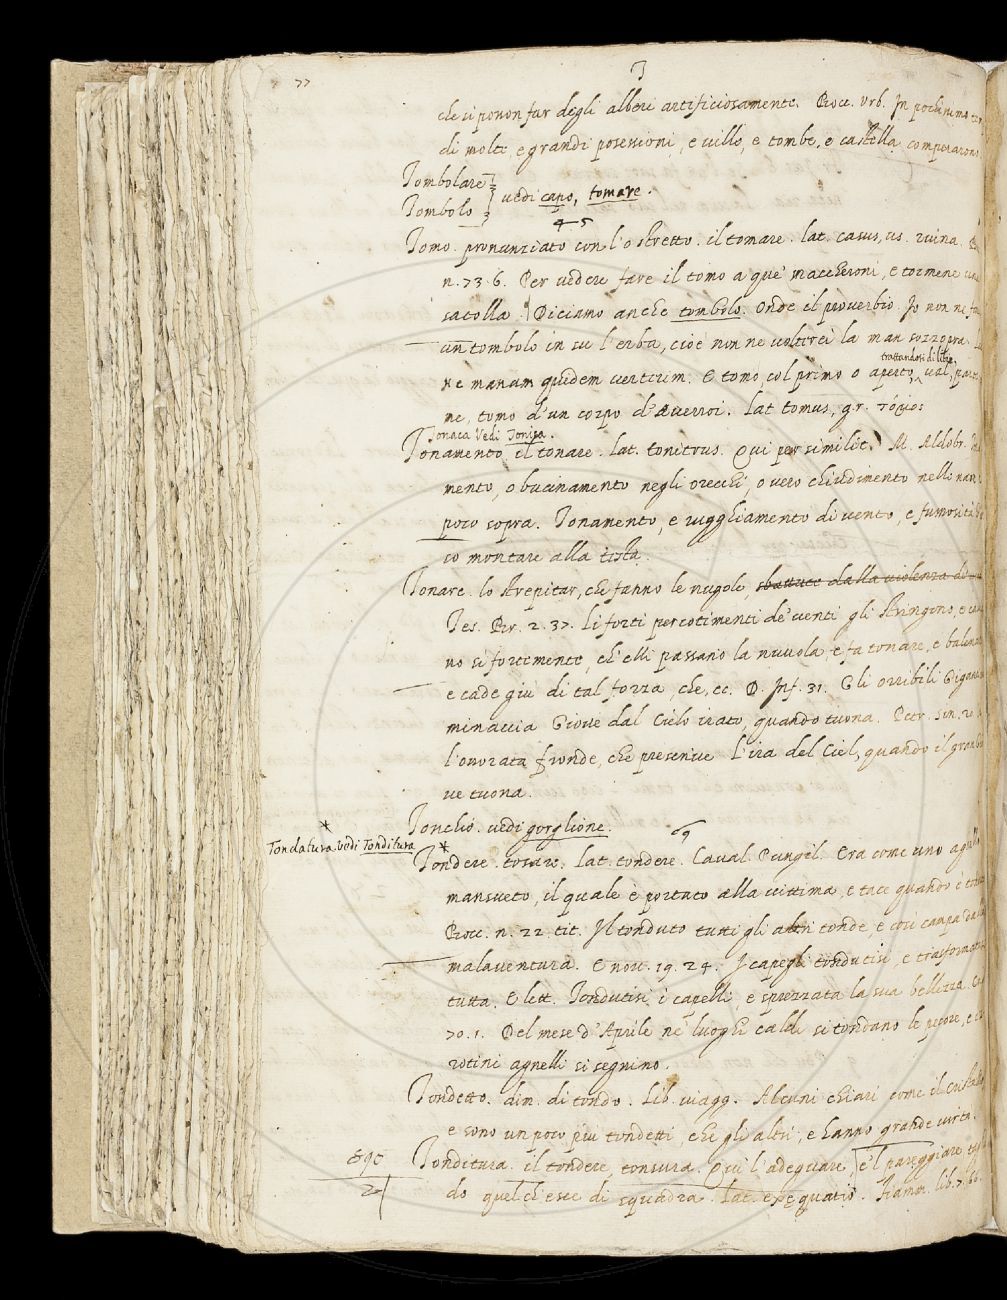 77
T
che si ponon far degli alberi artificiosamente. Bocc. Urb. In pochi
di molte, e grandi posessioni, e ville, e tombe, e castella comperarono
Tombolare
Tombolo } vedi capo, tomare.
4 5
Tomo. pronunziato con l'o stretto. il tomare. lat. casus, us. ruina.
n. 73. 6. Per vedere fare il tomo a que' maccheroni, e tormene
satolla. Diciamo anche tombolo. Onde il proverbio. Io non ne
un tombolo in su l'erba, cioè non ne volterei la man sozzopra.
ne manum quidem verterim. E tomo, col primo o aperto, trattandosi di libro, val,
me, tomo d'un corpo d'Averroi. Lat tomus, gr. τόμος
Tonaca Vedi Tonica.
Tonamento, il tonare. Lat. tonitrus. Qui per similit. M. Aldobr.
mento, o bucinamento negli orecchi, o vero chiudimento nelli
poco sopra. Tonamento, e rugghiamento di vento, e fumosità
co montare alla testa.
Tonare. lo strepitar, che fanno le nugole, sbattute dalla violenza de
Tes. Br. 2. 37. Li forti percotimenti de' venti gli stringono, e
no si fortemente, ch'elli passano la nuvola, e fa tonare, e
e cade giù di tal forza, che, ec. D. Inf. 31. Gli orribili Giganti
minaccia Giove dal Cielo irato, quando tuona. Petr. Son. 20.
l'onorata fronde, che prescrive L'ira del Ciel, quando il gran
ve tuona.
Tonchio. vedi gorglione.
69
Tondatura. vedi Tonditura
Tondere. tosare. Lat. tondere. Caval. Pungil. Era come uno agnello
mansueto, il quale è portato alla vittima, e tace quando è
Bocc. n. 22. tit. Il tonduto tutti gli altri tonde, e così campa
malaventura. E nov. 19. 24. I capegli tondutisi, e trasformatasi
tutta. E lett. Tondutisi i capelli e sprezzata la sua bellezza.
70. 1. Del mese d'Aprile ne' luoghi caldi si tondano le pecore, e
rotini agnelli si segnino.
Tondetto. dim. di tondo. Lib. viagg. Alcuni chiari come il cristallo
e sono un poco più tondetti, che gli altri, e hanno grande virtù.
Tonditura. il tondere, tonsura. Qui l'adeguare, e 'l pareggiare
do quel ch'esce di squadra. Lat. exequatio. Fiamm. lib. 7. 66.